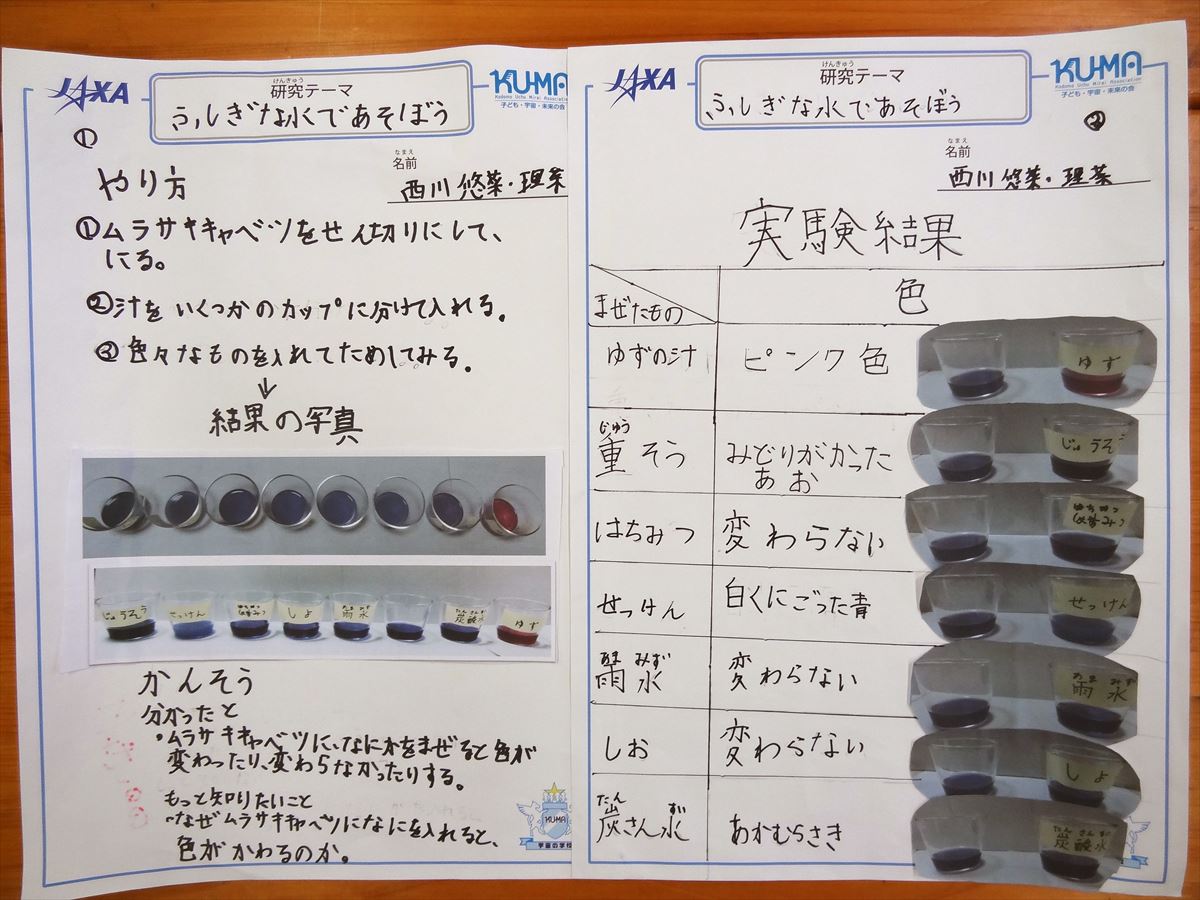 JAXA
けんきゅう
研究テーマ
ふしぎな水であそぼう
KU-MA
Kodomo Uchu Mirai Association
子ども・宇宙・未来の会
①
なまえ
名前
西川 悠菜・理菜
やり方
①ムラサキキャベツをせん切りにして、
にる。
②汁をいくつかのカップに分けて入れる。
③色々なものを入れてためしてみる。
↓
結果の写真
じゅうそう
せっけん
はちみつ
しお
雨水
炭酸水
ゆず
かんそう
分かったこと
・ムラサキキャベツに、なにかをまぜると色が
変わったり、変わらなかったりする。
もっと知りたいこと
・なぜムラサキキャベツになにを入れると、
色がかわるのか。
KUMA
宇宙の学校
JAXA
けんきゅう
研究テーマ
ふしぎな水であそぼう
KU-MA
Kodomo Uchu Mirai Association
子ども・宇宙・未来の会
②
なまえ
名前
西川 悠菜・理菜
実験結果
まぜたもの 色
ゆずの汁 ピンク色
ゆず
じゅう
重そう みどりがかった
あお
じゅうそう
はちみつ 変わらない
せっけん 白くにごった青
せっけん
あまみず
雨水 変わらない
雨水
しお 変わらない
しお
たん すい
炭さん水 あかむらさき
たんさんすい
炭酸水